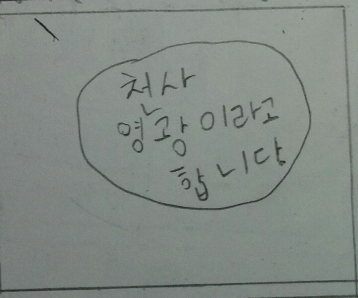 천사
영광이라고
합니다